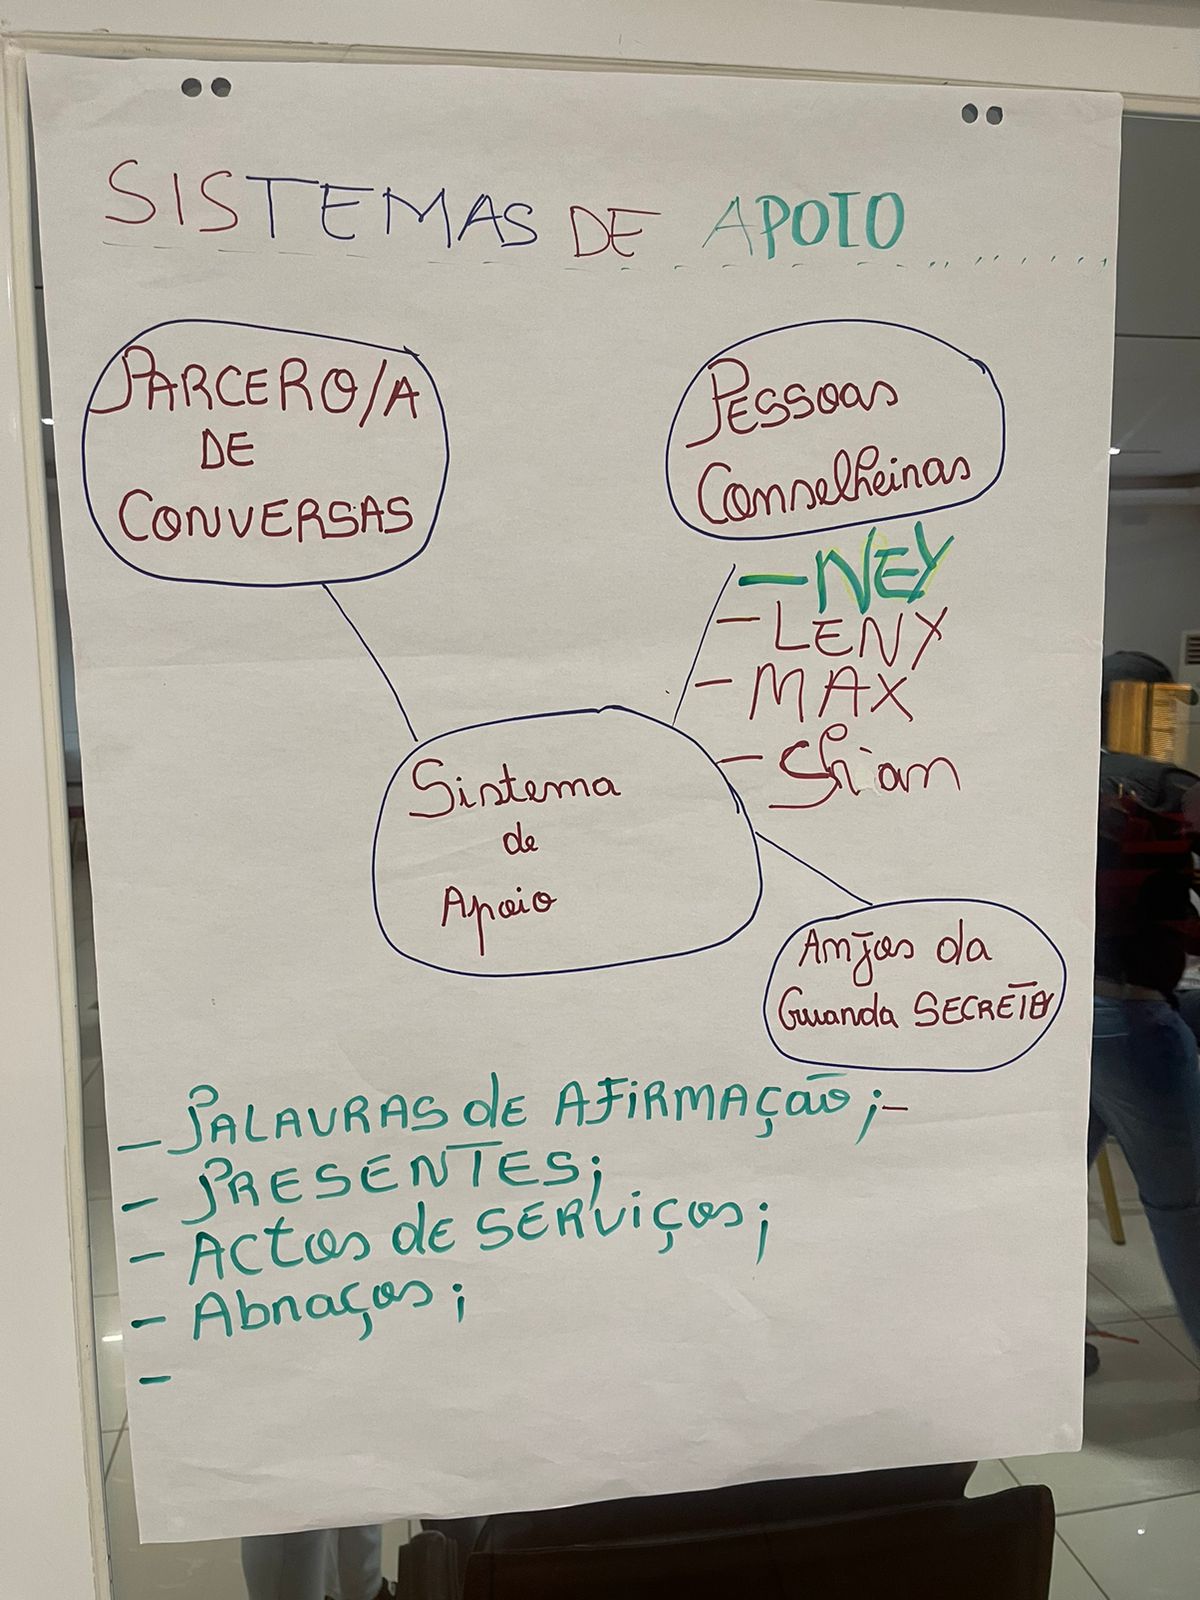 SISTEMAS DE APOIO
PARCERO/A
DE
CONVERSAS
Pessoas
Conselheiras
- NEY
- LENY
- MAX
- Shian
Sistema
de
Apoio
Anjos da
Guarda SECRETO
- PALAVRAS de AFIRMAÇão ;-
- PRESENTES;
- Actos de SERViços;
- Abraços;
-